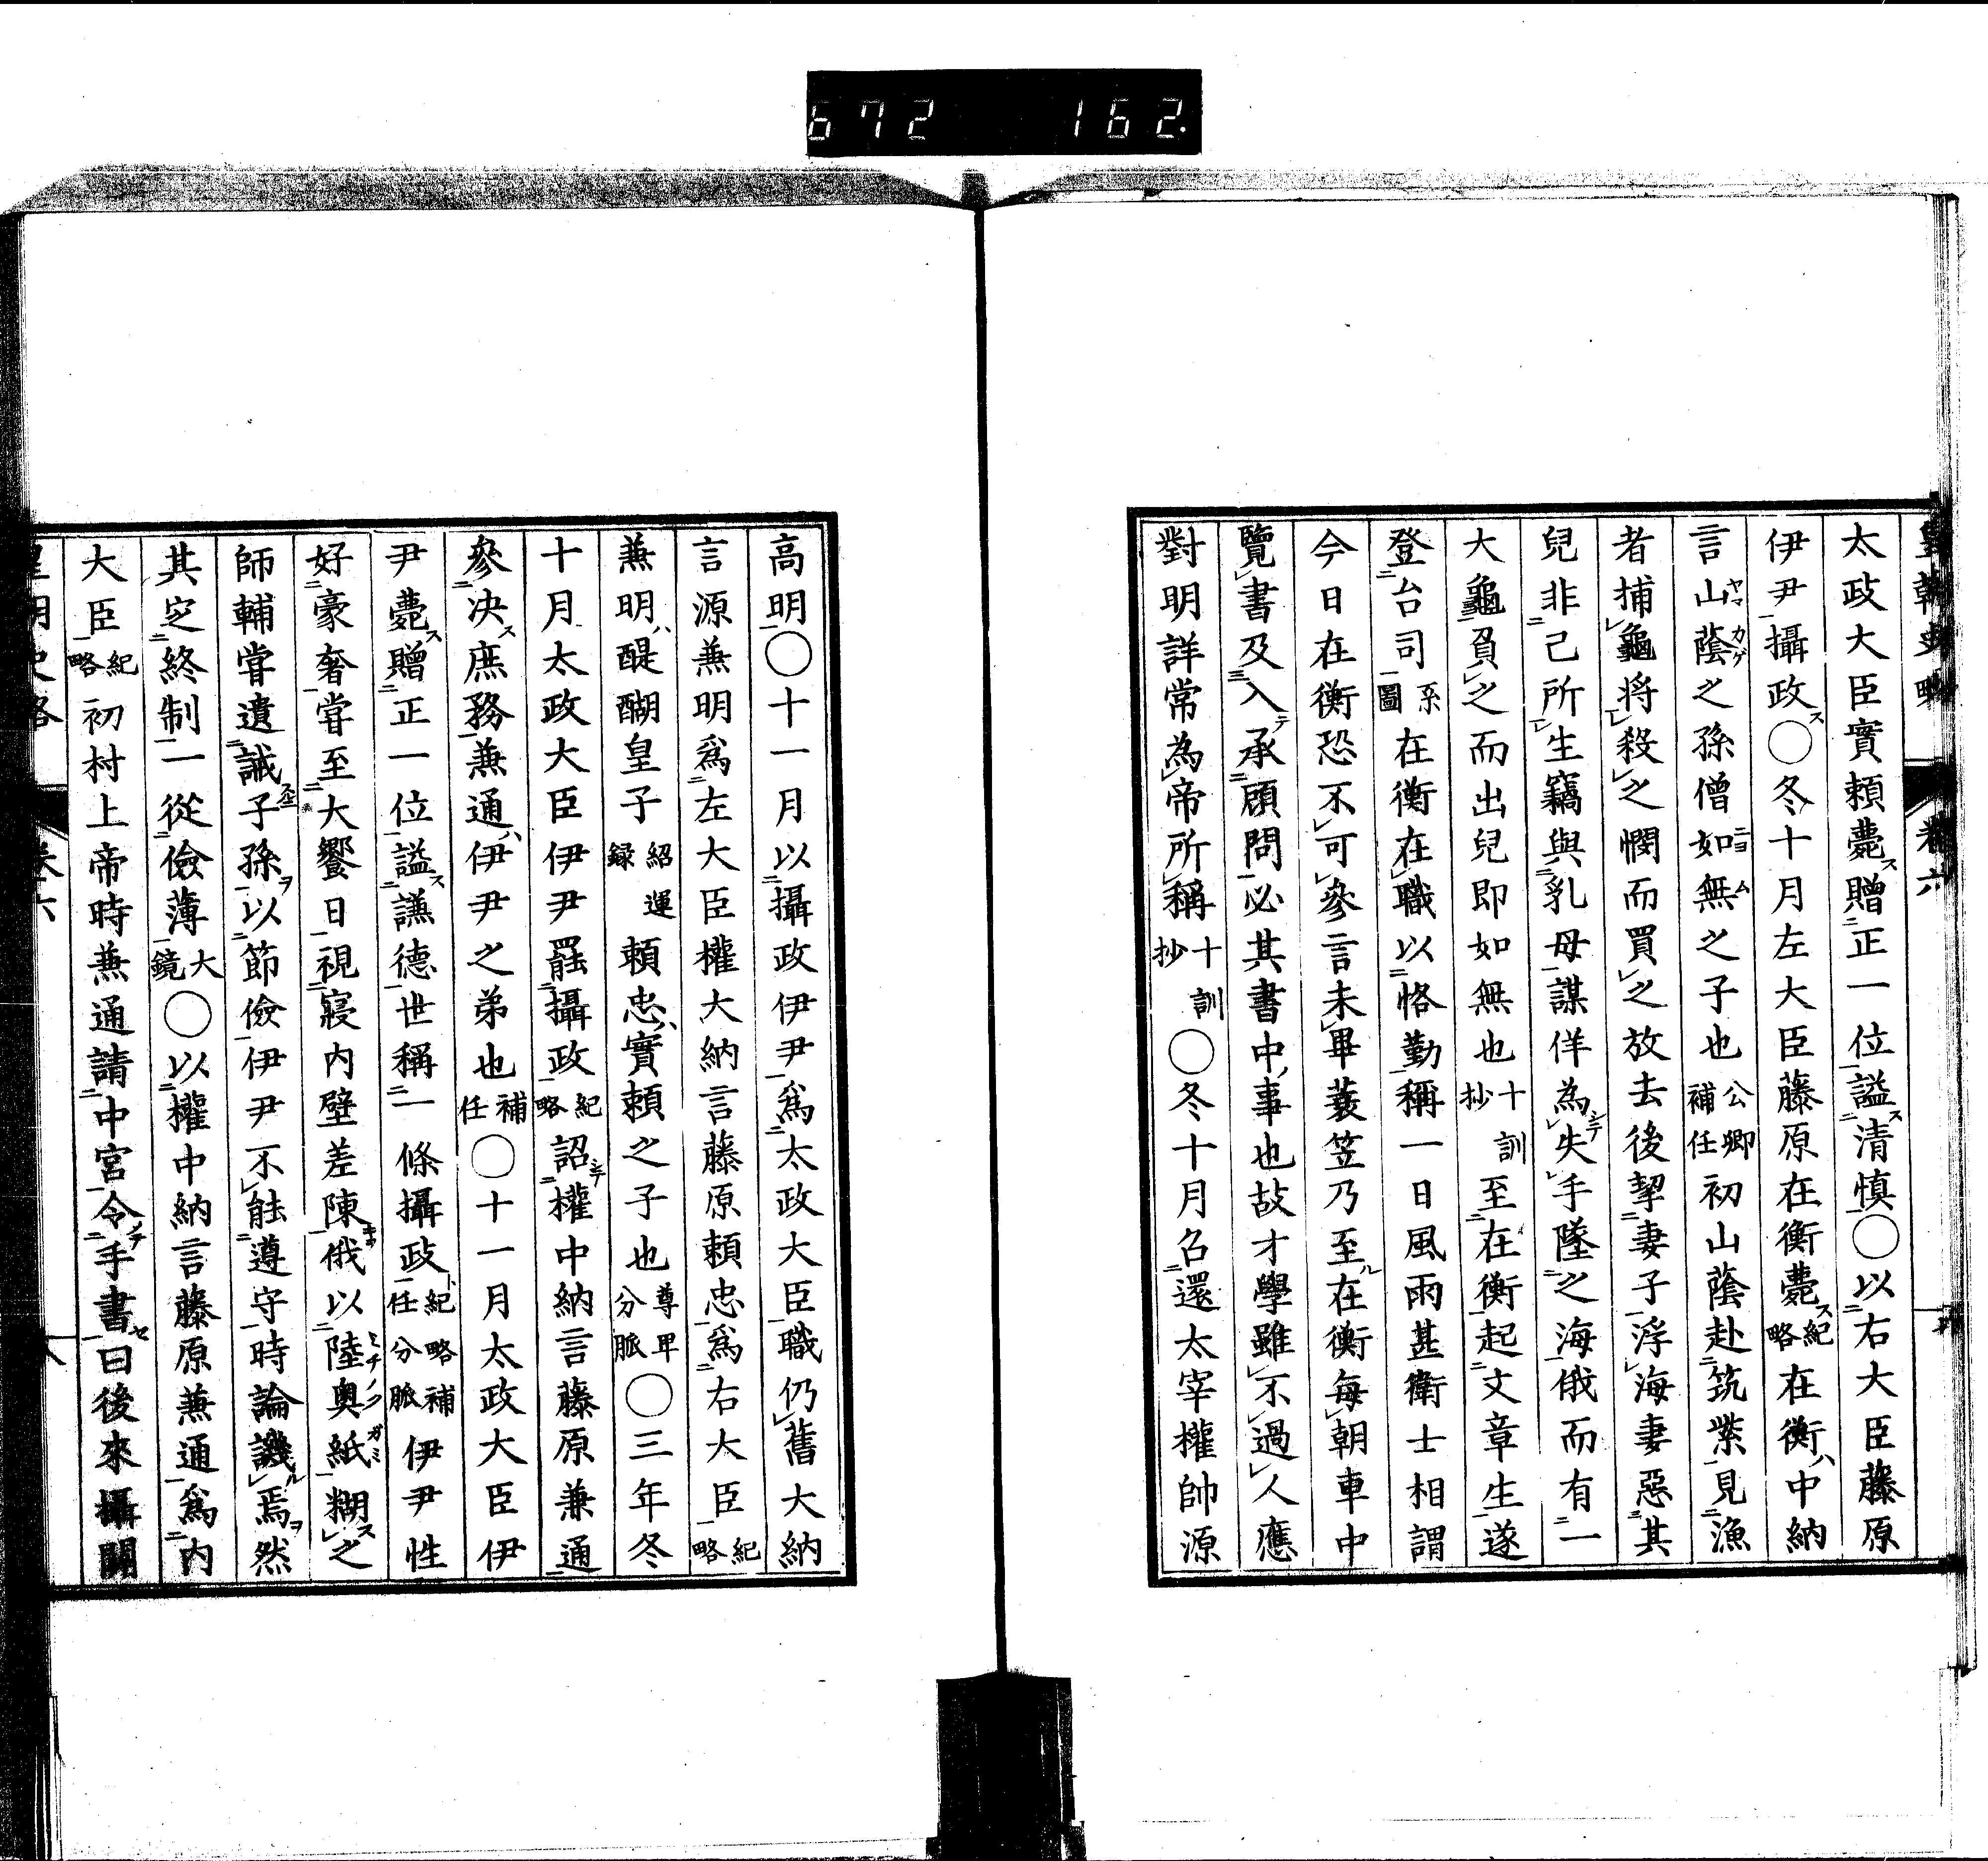 672 162.
皇朝史略 卷六
太政大臣實賴薨贈正一位謚清愼○以右大臣藤原
伊尹攝政○冬十月左大臣藤原在衡薨紀略在衡中納
言山蔭之孫僧如無之子也公卿補任初山蔭赴筑紫見漁
者捕龜將殺之憫而買之放去後挈妻子浮海妻惡其
兒非己所生竊與乳母謀佯為失手墜之海俄而有一
大龜負之而出兒即如無也十訓抄至在衡起文章生遂
登台司系圖在衡在職以恪勤稱一日風雨甚衛士相謂
今日在衡恐不可參言未畢蓑笠乃至在衡每朝車中
覽書及入承顧問必其書中事也故才學雖不過人應
對明詳常為帝所稱十訓抄○冬十月召還太宰權帥源
高明○十一月以攝政伊尹爲太政大臣職仍舊大納
言源兼明爲左大臣權大納言藤原賴忠爲右大臣紀略
兼明醍醐皇子紹運録賴忠實賴之子也尊卑分脈○三年冬
十月太政大臣伊尹罷攝政紀略詔權中納言藤原兼通
參決庶務兼通伊尹之弟也補任○十一月太政大臣伊
尹薨贈正一位謚謙德世稱一條攝政紀略補任分脈伊尹性
好豪奢嘗至大饗日視寢内壁差陳俄以陸奥紙糊之
師輔嘗遺誡子孫以節儉伊尹不能遵守時論譏焉然
其定終制一從儉薄大鏡○以權中納言藤原兼通爲内
大臣紀略初村上帝時兼通請中宮令手書曰後來攝關
皇朝史略 卷六